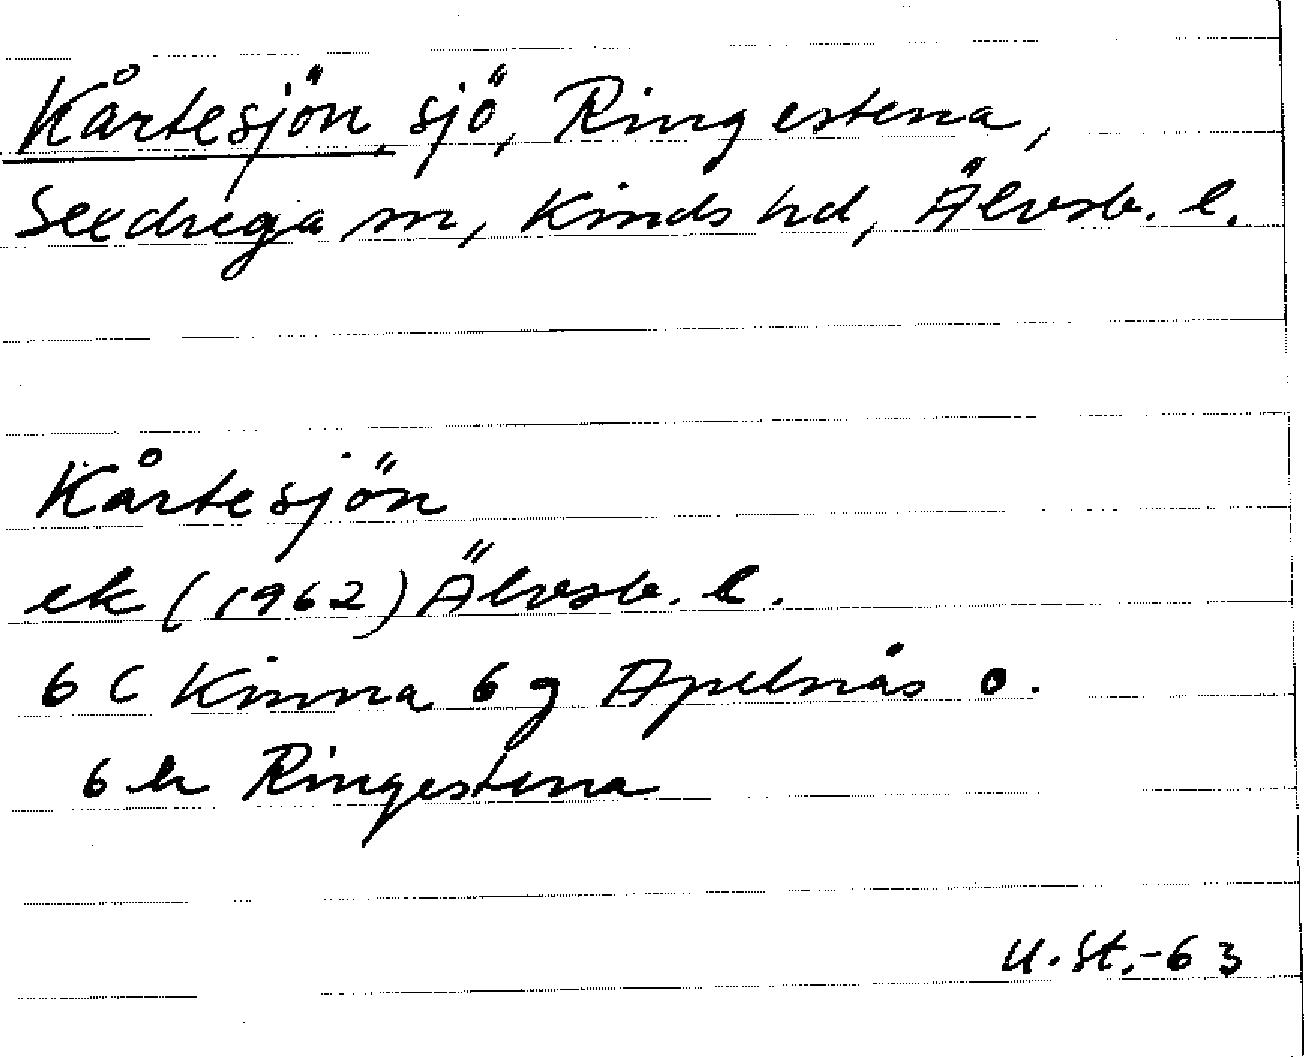 Kårtesjön, sjö, Ringestena,
Sexdrega sn, Kinds hd, Älvsb. l.
Kårtesjön
ek (1962) Älvsb. l.
6 C Kinna 6 g Apelnås o.
6 h Ringestena
U. St. -63